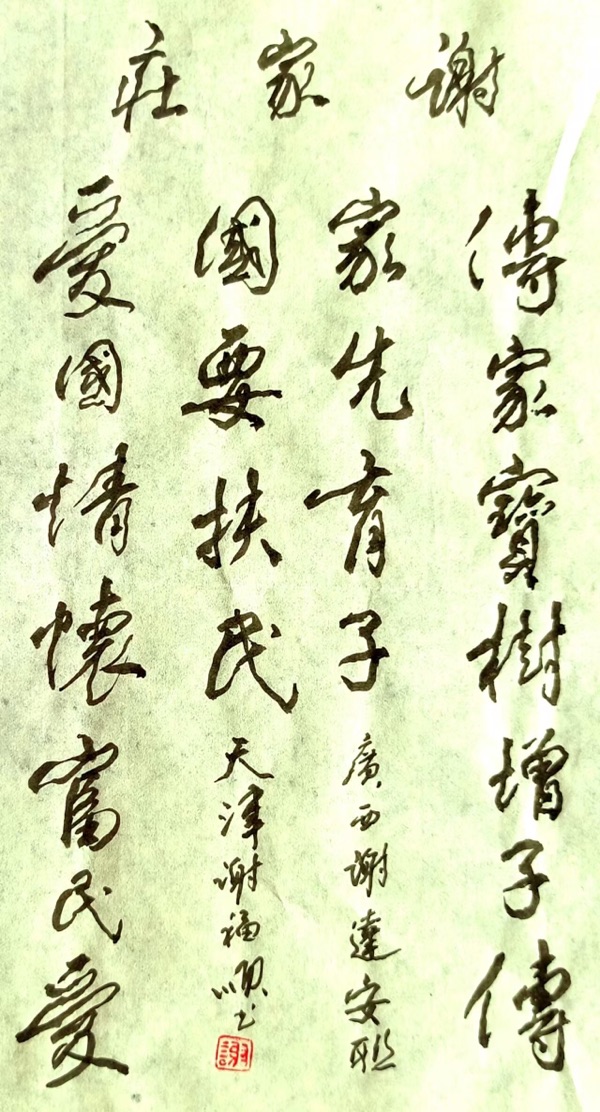 謝家莊
傳家寶樹增子傳
家先育子
廣西謝達安聯
國要扶民
天津謝福順書
謝
愛國情懷富民愛